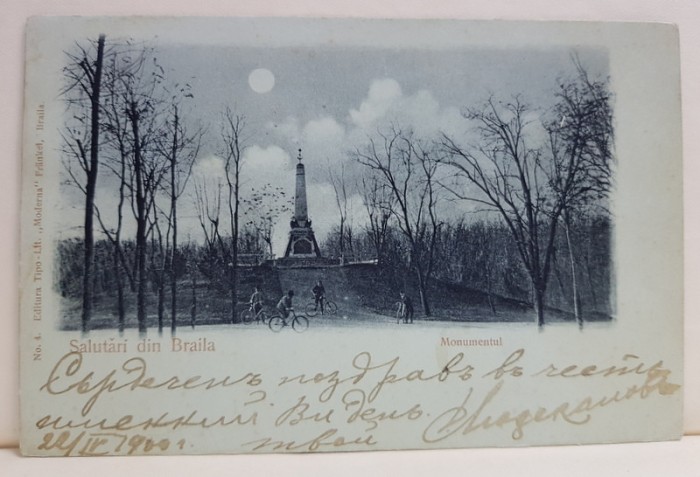 No. 4. Editura Tipo-Lit. „Moderna" Fränkel, Braila
Salutări din Braila
Monumentul
Сърдеченъ поздравъ въ честь
именний Ви день.
22/IV 1900 г. твой